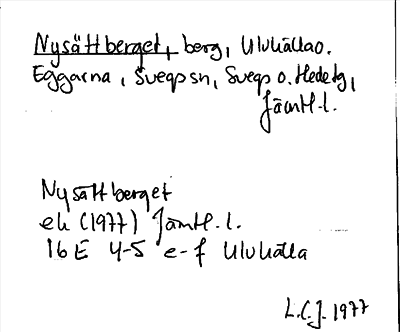 Nysättberget, berg, Ulvkälla o.
Eggarna, Svegs sn, Svegs o. Hede tg,
Jämtl. l.
Nysättberget
ek (1977) Jämtl. l.
16E 4-5 e-f Ulvkälla
L.C.J. 1977